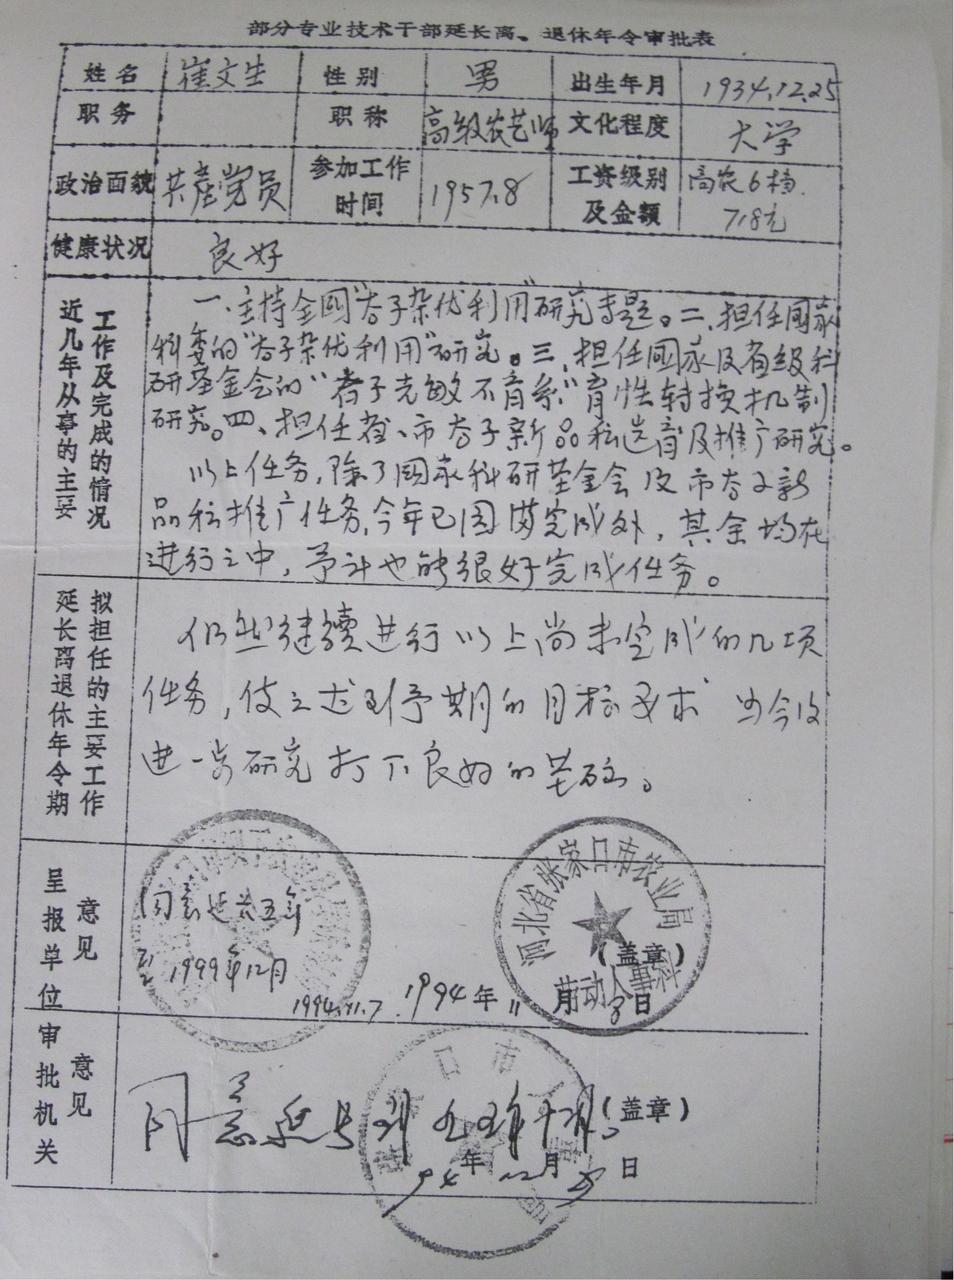 部分专业技术干部延长离、退休年令审批表
姓名 崔文生 性别 男 出生年月 1934.12.25
职务 职称 高级农艺师 文化程度 大学
政治面貌 共産党员 参加工作时间 1957.8 工资级别及金额 高农6档. 718元
健康状况 良好
近几年从事的主要
工作及完成的情况
一、主持全国"谷子杂优利用"研究专题。二、担任国家
科委的"谷子杂优利用"研究。三、担任国家及省级科
研基金会的"谷子光敏不育系"育性转换机制
研究。四、担任省、市谷子新品种选育及推广研究。
以上任务,除了国家科研基金会及市谷子新
品种推广任务,今年已圆满完成外,其余均在
进行之中,予计也能很好完成任务。
延长离退休年令期
拟担任的主要工作
仍然继续进行以上尚未完成的几项
任务,使之达到予期的目标要求 为今后
进一步研究打下良好的基础。
呈报单位
意见
同意延长五年
到1999年12月
1994.11.7.
河北省张家口市农业局
劳动人事科
(盖章)
1994年11月8日
审批机关
意见
同意延长到九九年十二月
口市
(盖章)
94年12月 日